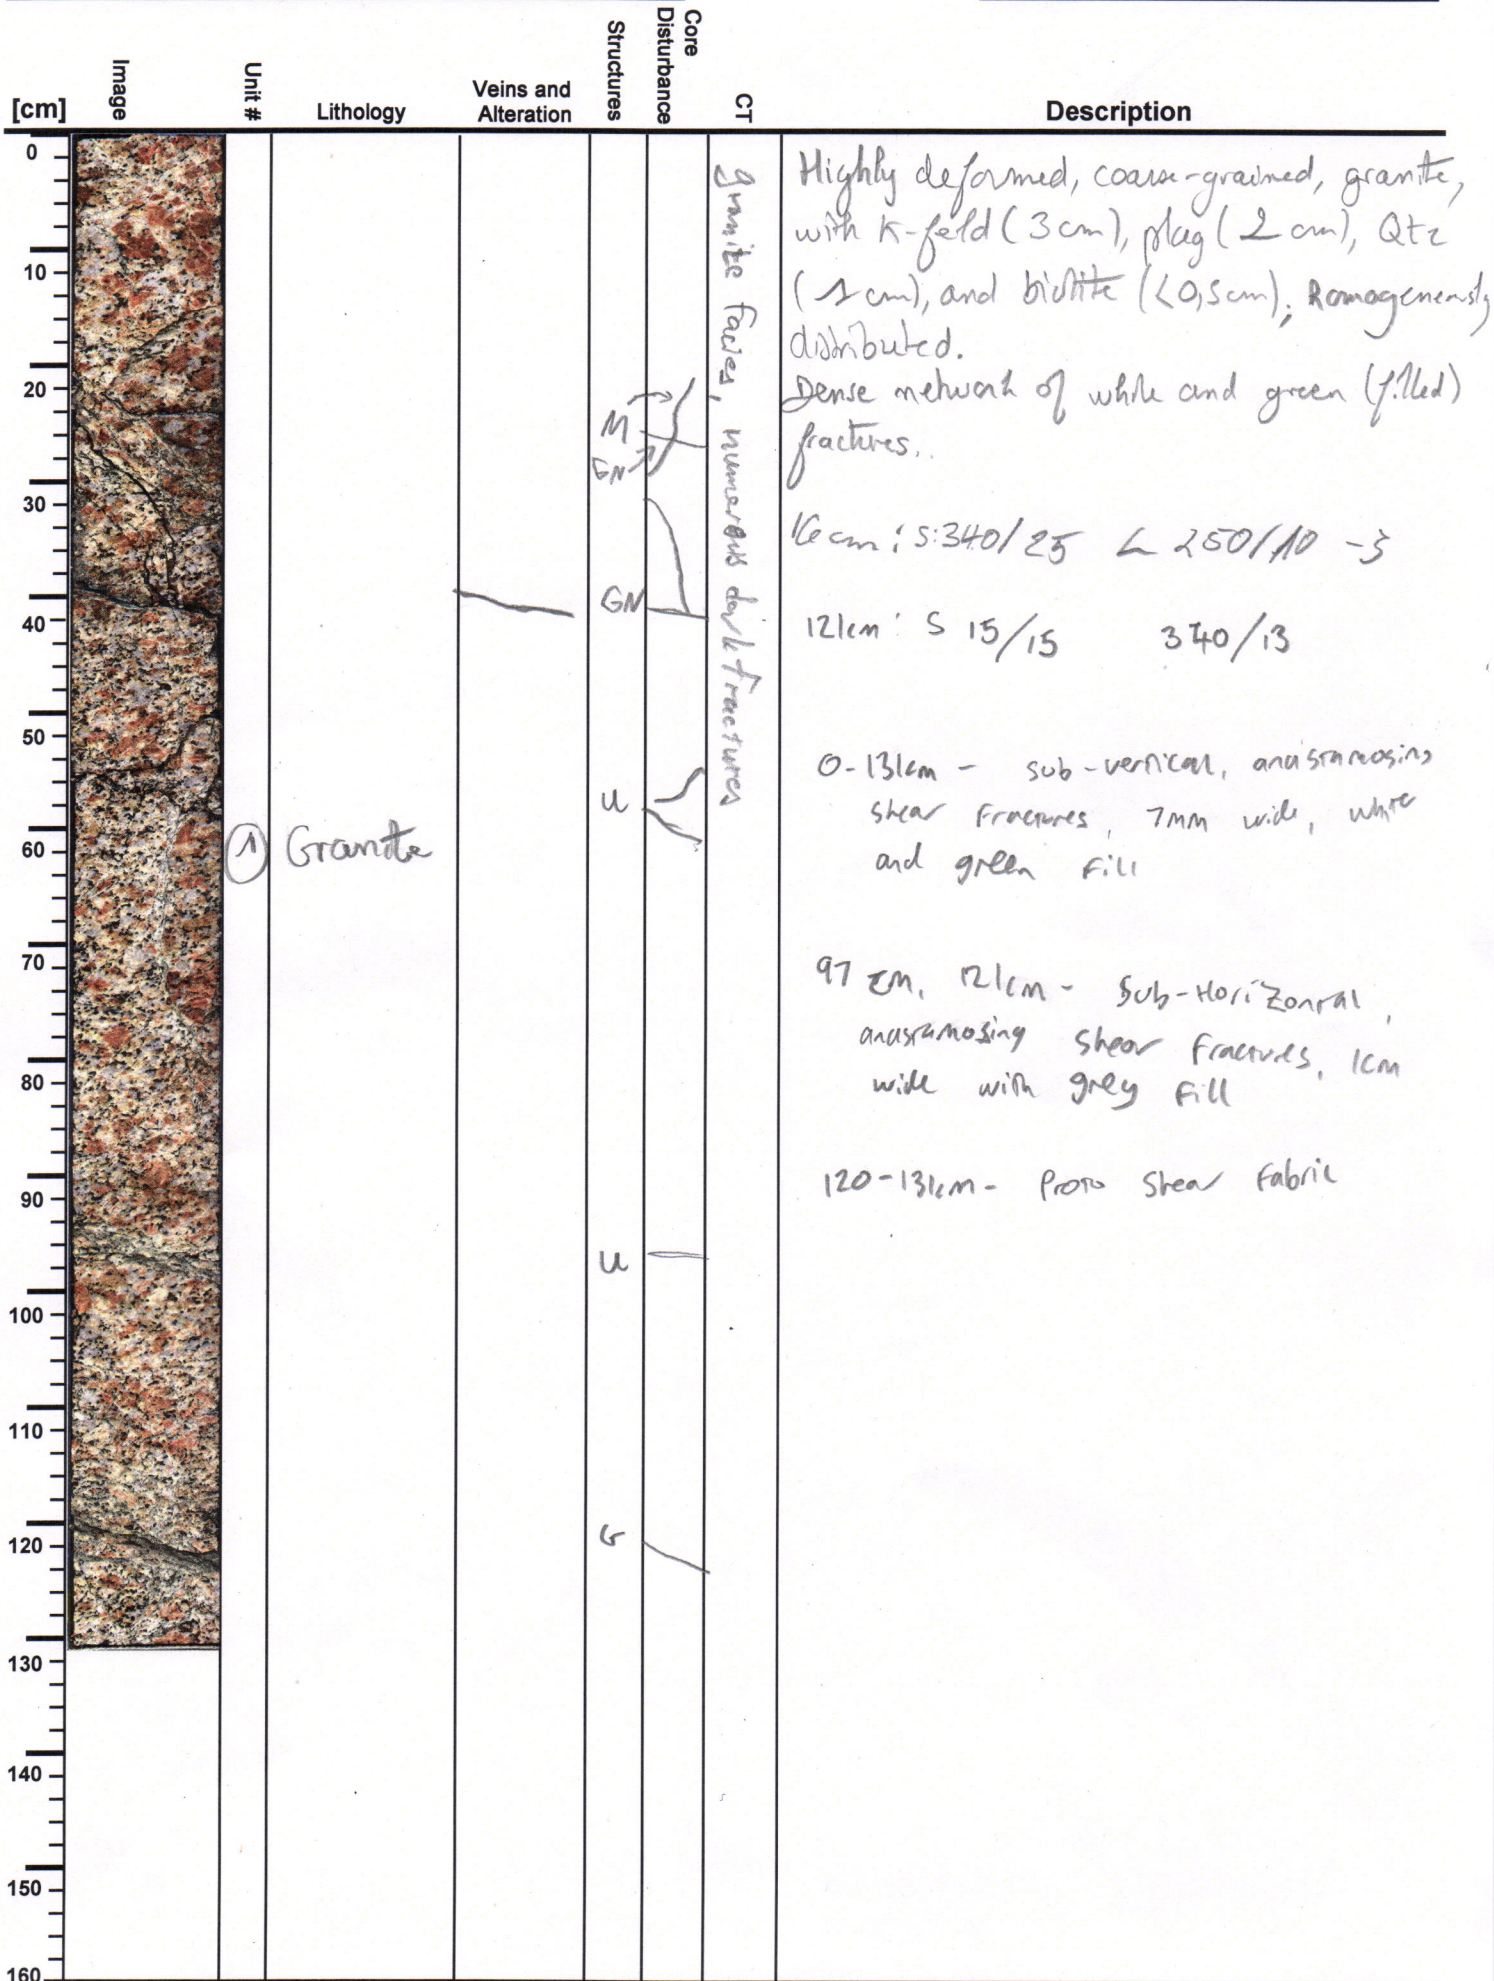 [cm]
Image
Unit #
Lithology
Veins and
Alteration
Structures
Core
Disturbance
CT
Description
0
10
20
30
40
50
60
70
80
90
100
110
120
130
140
150
160
1
Granite
M
GN
GN
U
U
G
granite facies, numerous dark fractures
Highly deformed, coarse-grained, granite,
with K-feld (3 cm), plag (2 cm), Qtz
(1 cm), and biotite (<0,5cm); homogeneously
distributed.
Dense network of white and green (filled)
fractures..
cm: S:340/25 L 250/10
121cm: S 15/15 340/13
0-131cm - sub-vertical, anastamosing
shear fractures, 7mm wide, white
and green fill
97 cm, 121cm - Sub-Horizontal,
anastamosing shear fractures, 1cm
wide with grey fill
120-131cm - Proto Shear Fabric